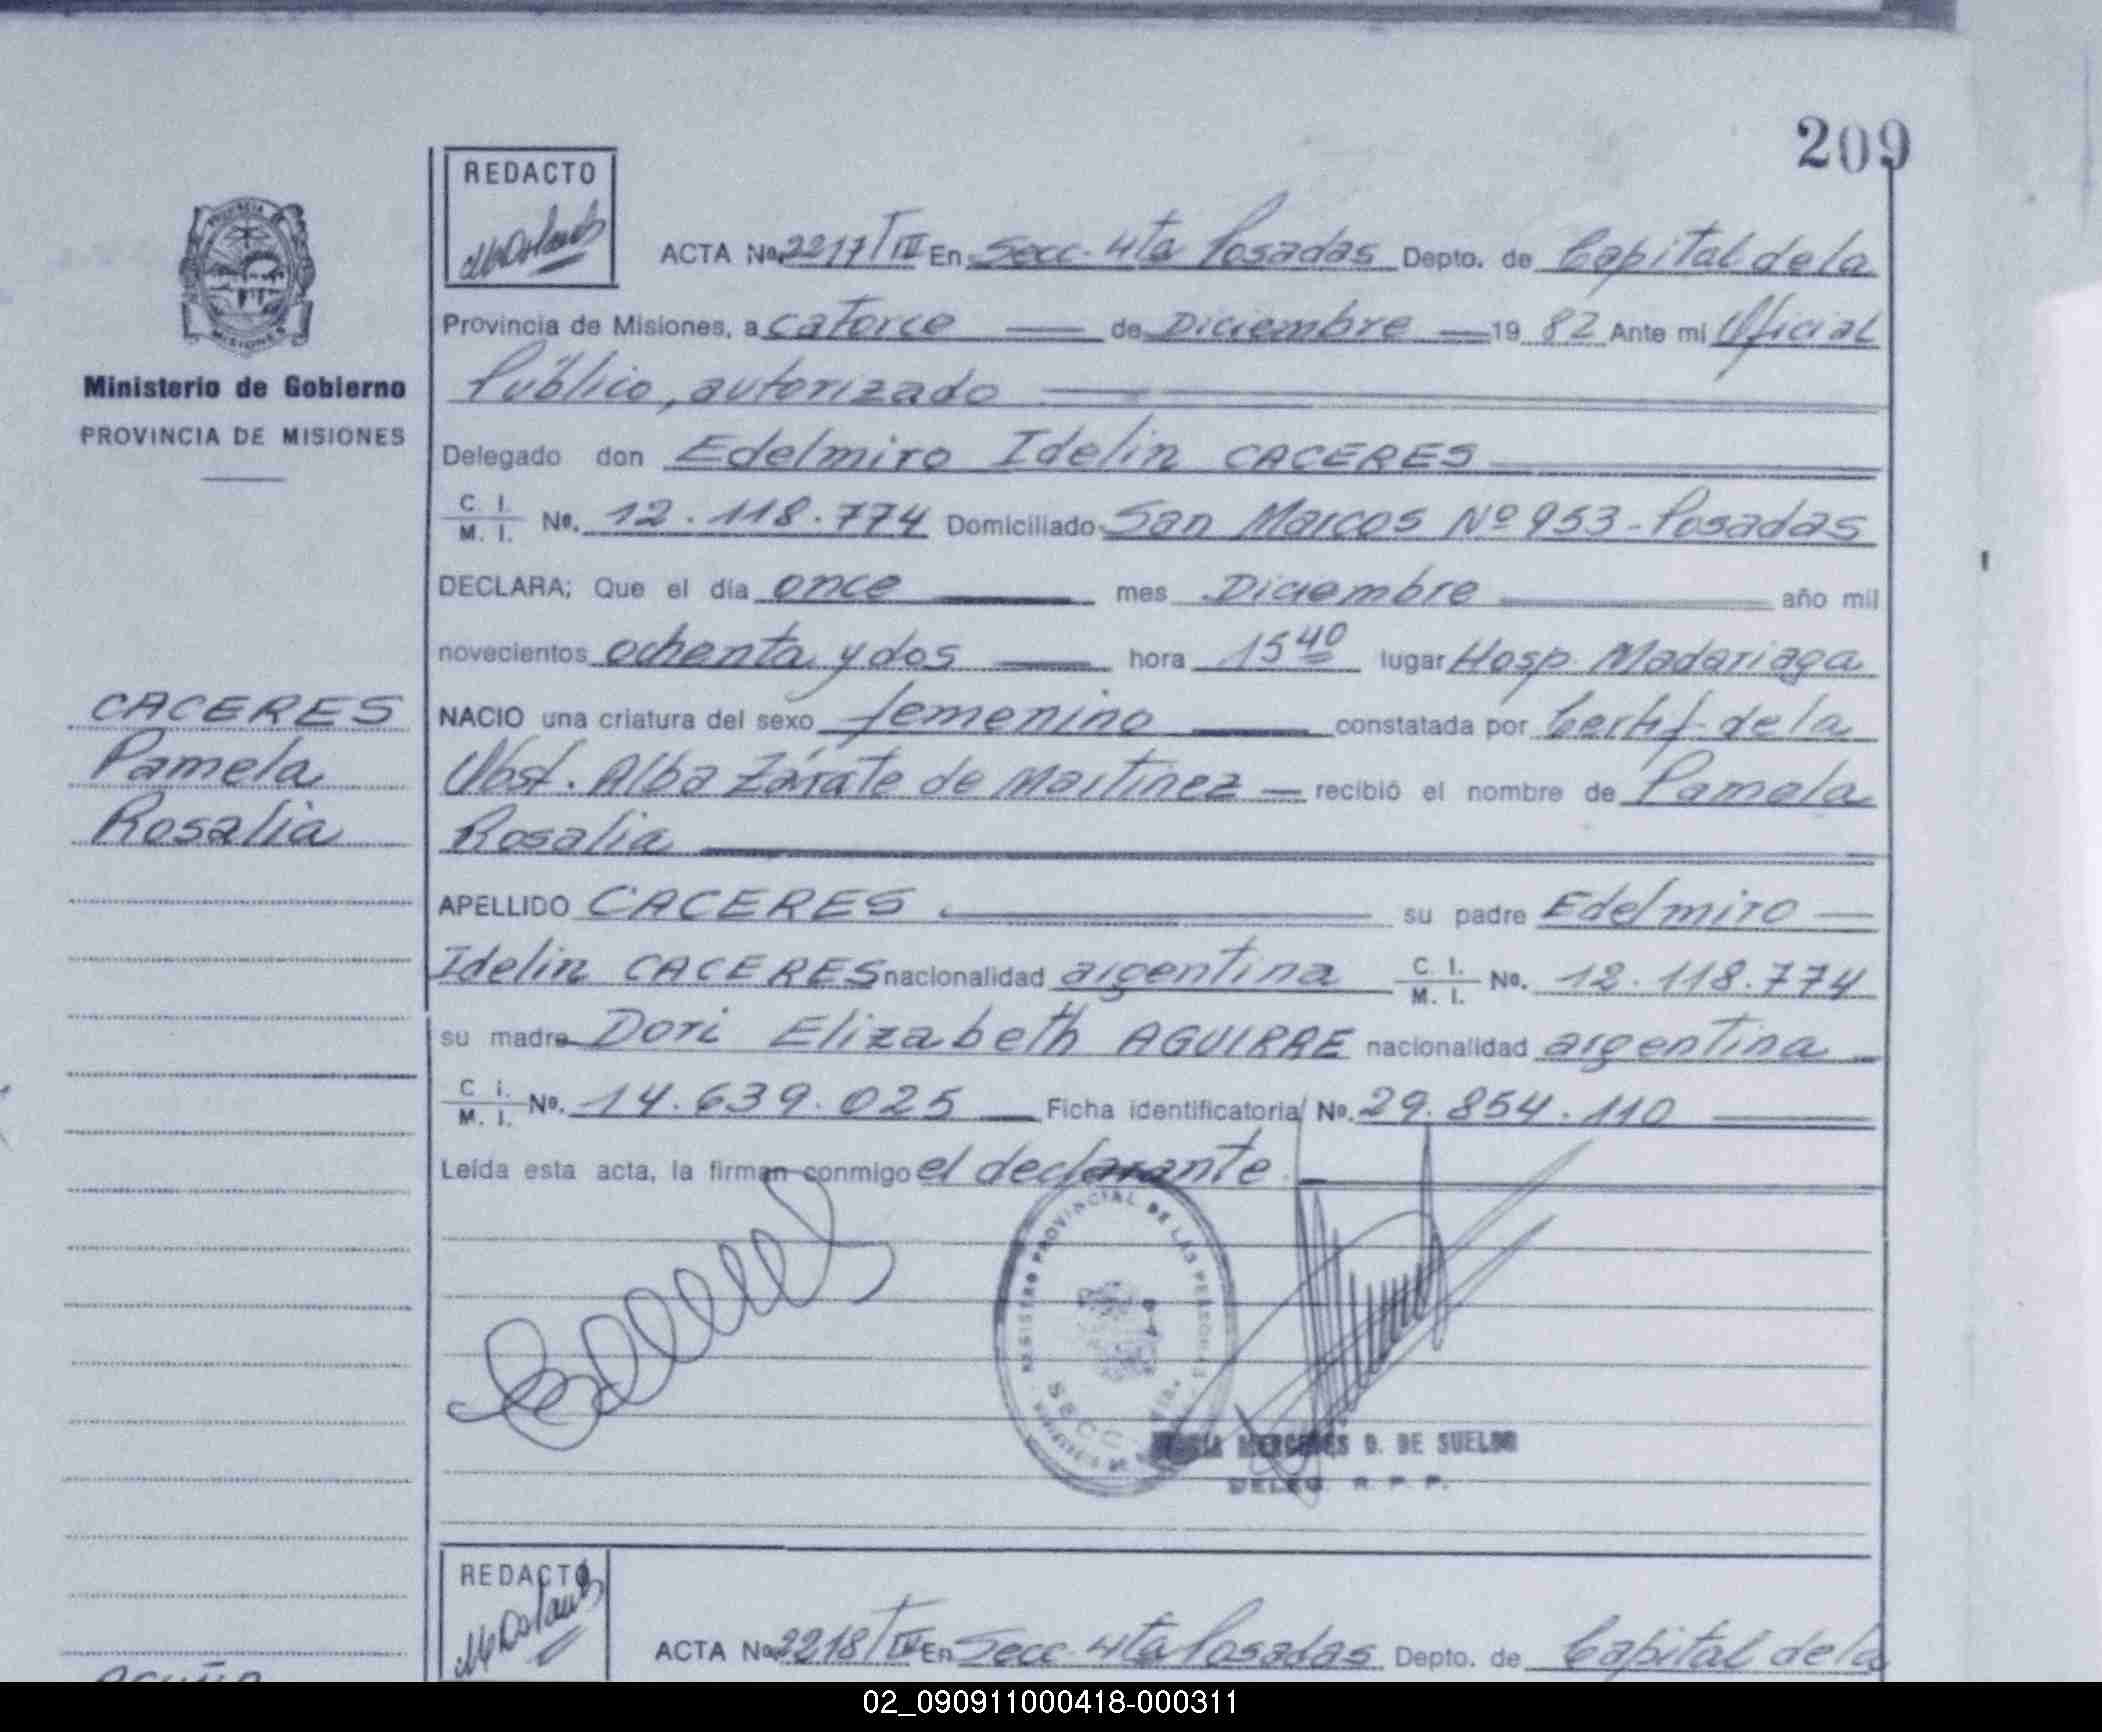 209
REDACTO
PROVINCIA DE
MISIONES
ACTA No. 2217/T IV En Secc. 4ta Posadas Depto. de Capital de la
Provincia de Misiones, a catorce de Diciembre 1982 Ante mi Oficial
Público, autorizado
Ministerio de Gobierno
PROVINCIA DE MISIONES
Delegado don Edelmiro Idelin CACERES
C. I. M. I. No. 12.118.774 Domiciliado San Marcos Nº 953 - Posadas
DECLARA; Que el día once mes Diciembre año mil
novecientos ochenta y dos hora 15 40 lugar Hosp. Madariaga
CACERES
Pamela
Rosalia
NACIO una criatura del sexo femenino constatada por Certif. de la
Obst. Alba Zárate de Martinez - recibió el nombre de Pamela
Rosalia
APELLIDO CACERES su padre Edelmiro
Idelin CACERES nacionalidad argentina C. I. M. I. No. 12.118.774
su madre Dori Elizabeth AGUIRRE nacionalidad argentina
C. I. M. I. No. 14.639.025 Ficha identificatoria No. 29.854.110
Leída esta acta, la firman conmigo el declarante
REGISTRO PROVINCIAL DE LAS PERSONAS
SECC
MERCEDES D. DE SUELDO
DELEG. R. P. P.
REDACTO
ACTA No. 2218/T IV En Secc. 4ta Posadas Depto. de Capital de la
02_090911000418-000311